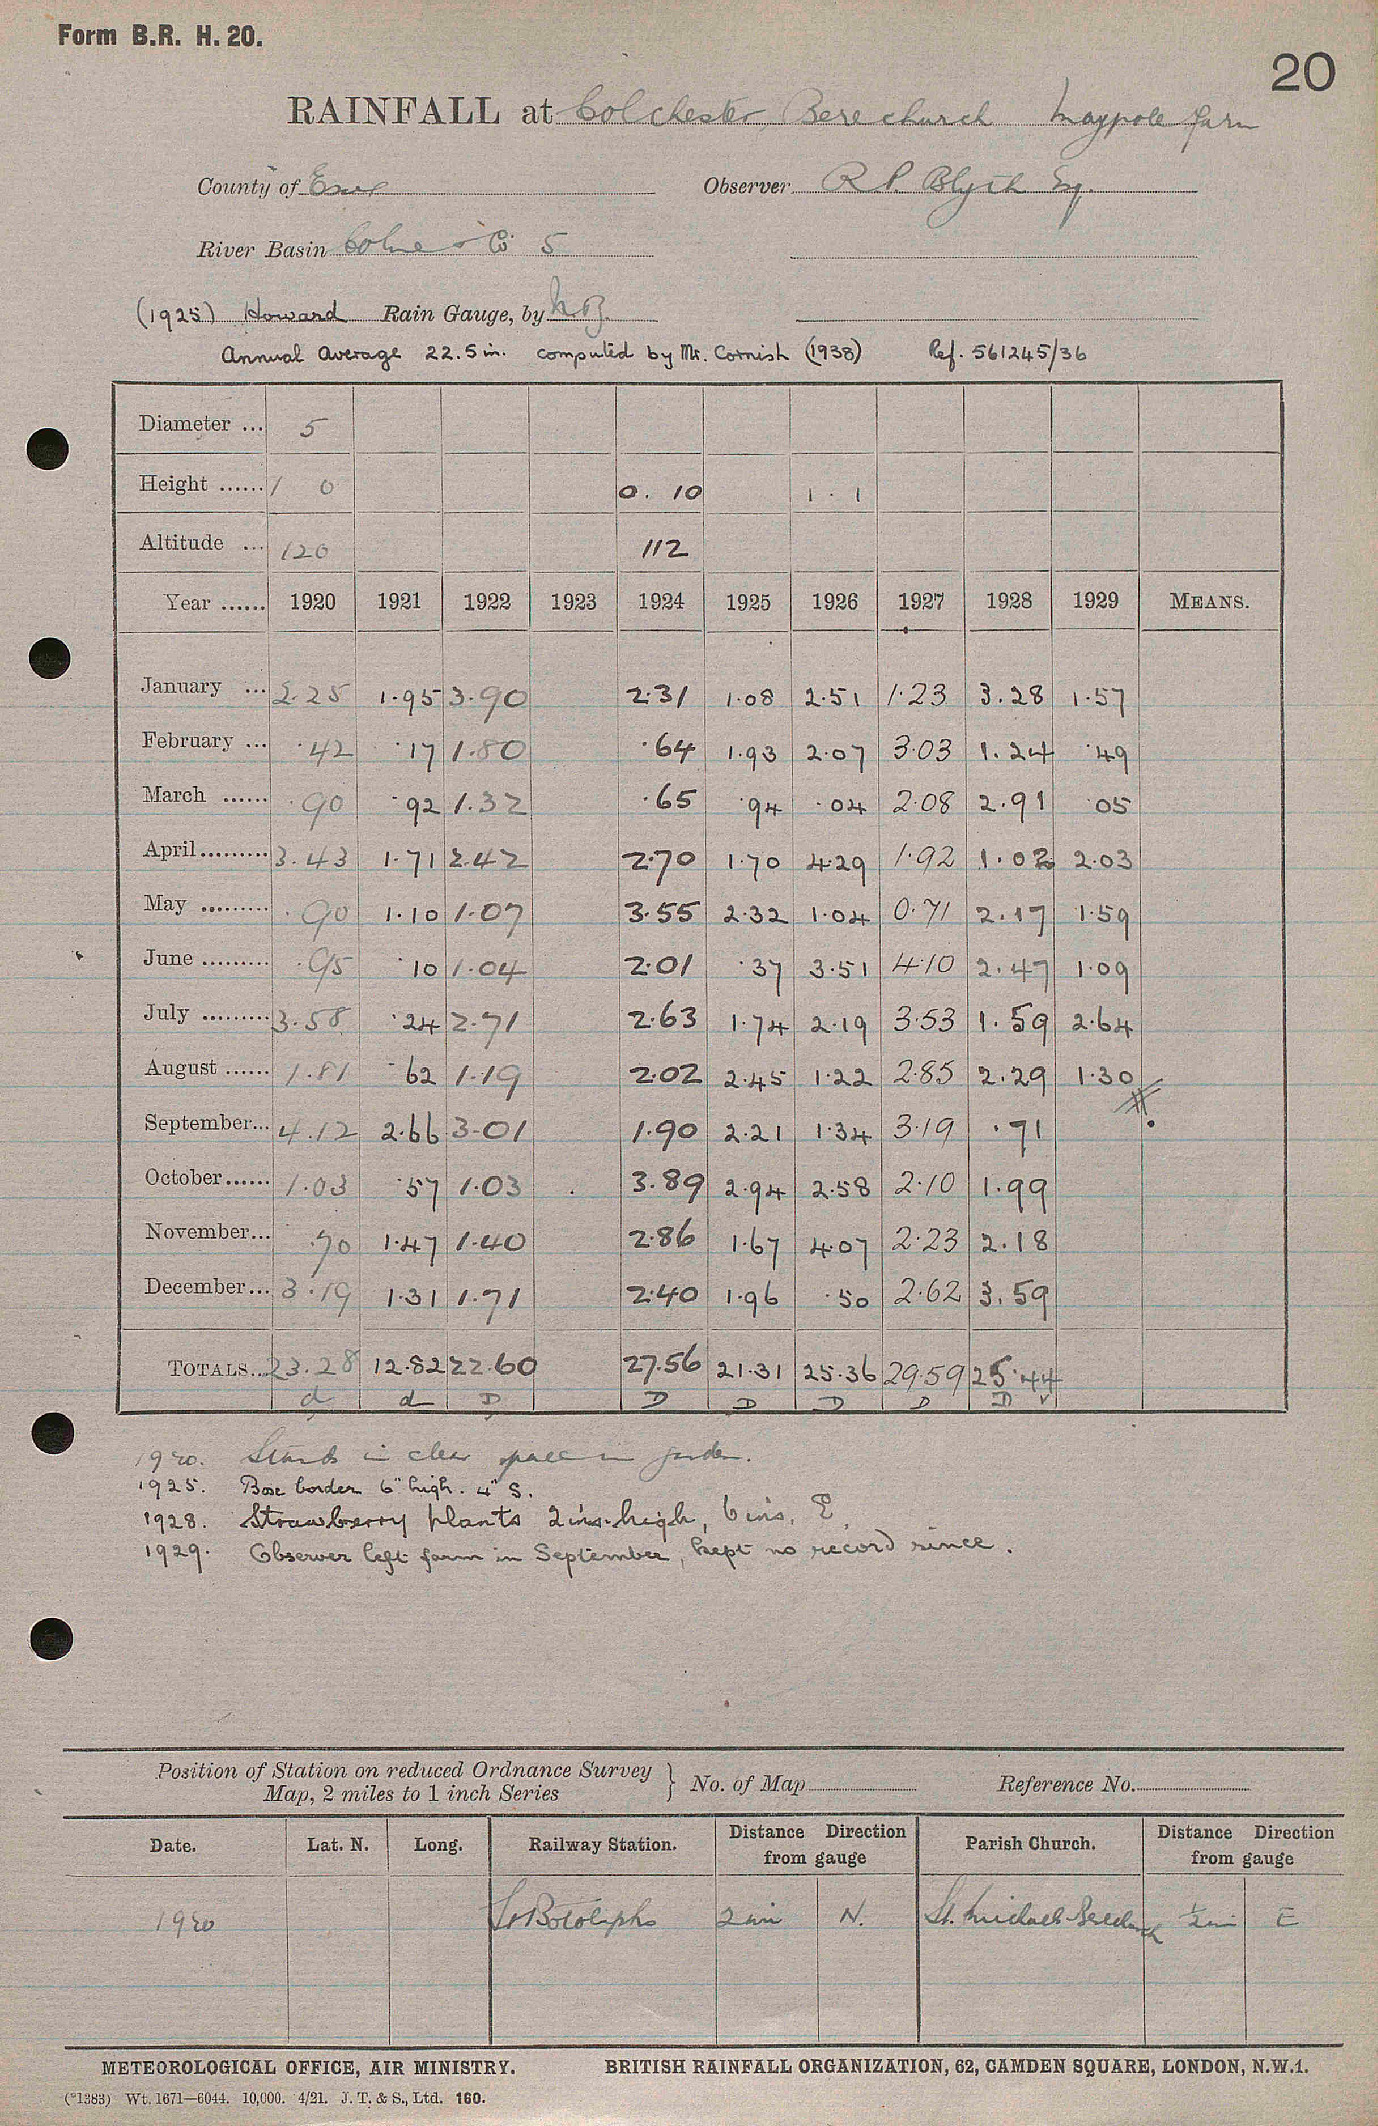 Form B.R. H. 20.
20
RAINFALL at Colchester, Berechurch Maypole farm
County of Essex Observer R P. Blyth Esq.
River Basin Colne & Co 5
(1925) Howard Rain Gauge, by
Annual Average 22.5 in. computed by Mr. Cornish (1938) Ref. 561245/36
Diameter ... 5
Height ...... 1 0 0. 10 1 . 1
Altitude ... 120 112
Year ...... 1920 1921 1922 1923 1924 1925 1926 1927 1928 1929 MEANS.
January ... 2.25 1.95 3.90 2.31 1.08 2.51 1.23 3.28 1.57
February ... .42 .17 1.80 .64 1.93 2.07 3.03 1.24 .49
March ...... .90 .92 1.32 .65 .94 .04 2.08 2.91 .05
April......... 3.43 1.71 2.42 2.70 1.70 4.29 1.92 1.02 2.03
May ......... .90 1.10 1.07 3.55 2.32 1.04 0.71 2.17 1.59
June ......... .95 .10 1.04 2.01 .37 3.51 4.10 2.47 1.09
July ......... 3.58 .24 2.71 2.63 1.74 2.19 3.53 1.59 2.64
August ...... 1.81 .62 1.19 2.02 2.45 1.22 2.85 2.29 1.30
September... 4.12 2.66 3.01 1.90 2.21 1.34 3.19 .71
October...... 1.03 .57 1.03 3.89 2.94 2.58 2.10 1.99
November... .70 1.47 1.40 2.86 1.67 4.07 2.23 2.18
December... 3.19 1.31 1.71 2.40 1.96 .50 2.62 3.59
TOTALS... 23.28 12.82 22.60 27.56 21.31 25.36 29.59 25.44
d d D D D D D D v
1920. Stands in clear space in garden.
1925. Box border 6" high. 4" S.
1928. Strawberry plants 2 ins. high, 6 ins. E.
1929. Observer left farm in September, kept no record since.
Position of Station on reduced Ordnance Survey Map, 2 miles to 1 inch Series } No. of Map Reference No.
Date. Lat. N. Long. Railway Station. Distance Direction from gauge Parish Church. Distance Direction from gauge
1920 St Botolphs 2 mi N. St. Michael Berechurch ½ mi E
METEOROLOGICAL OFFICE, AIR MINISTRY. BRITISH RAINFALL ORGANIZATION, 62, CAMDEN SQUARE, LONDON, N.W.1.
(*1383) Wt. 1671—6044. 10,000. 4/21. J. T. & S., Ltd. 160.